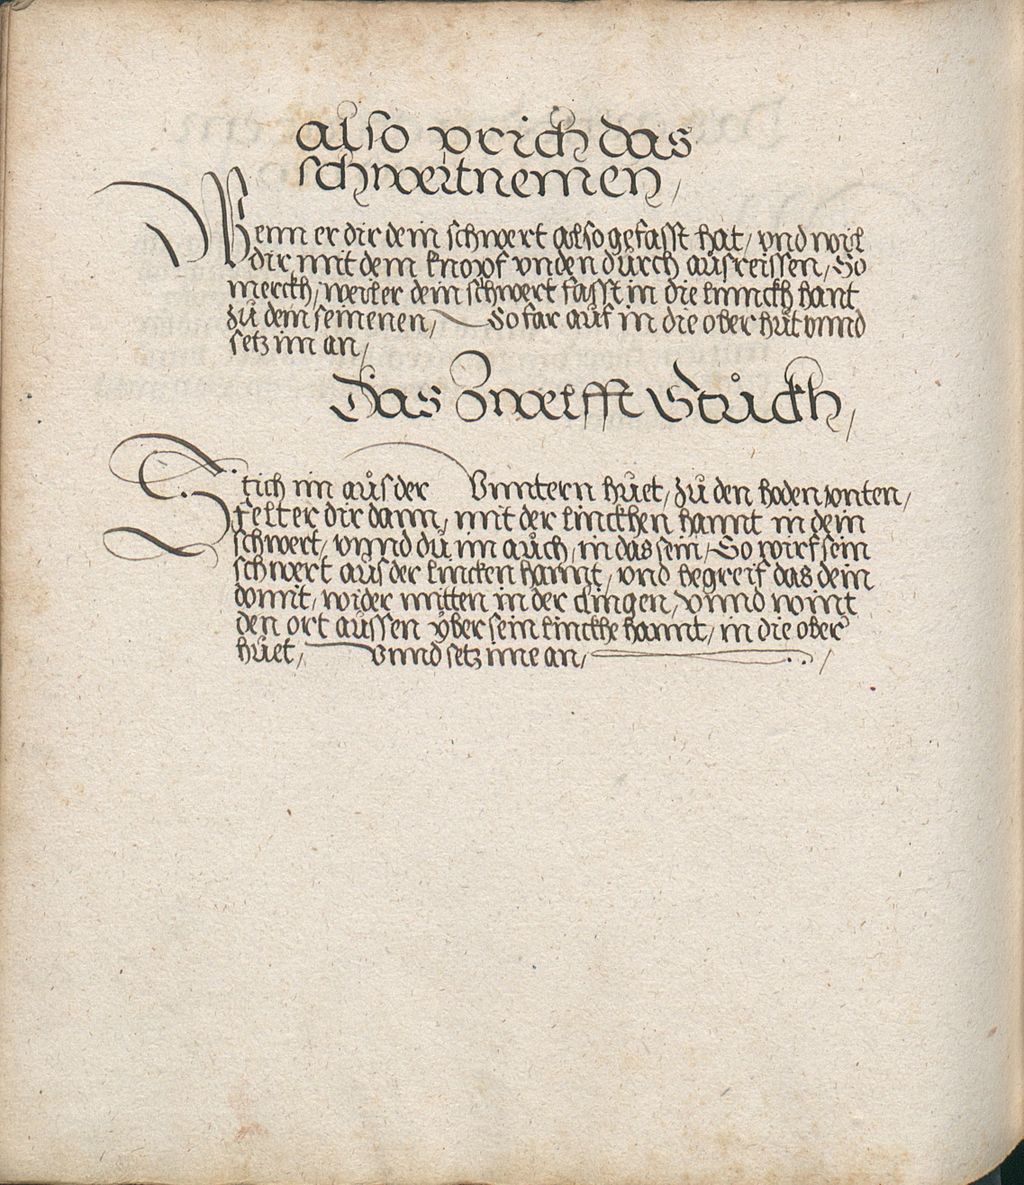 also prich das
schwertnemen /
Wenn er dir dein schwert also gefasst hat / vnd wil
dir mit dem knopf vnden durch ausreissen / So
merckh / weil er dein schwert fasst in die linnckh hant
zů dem seinenen / So far auf in die ober hůt vnnd
setz im an /
Das Zwelfft Stůckh /
Stich im aůs der Vnntern hůet / zů den hoden vnten /
felt er dir dann / mit der linckhen hannt in dein
schwert / vnnd dů im aůch / in das sein / So wirf sein
schwert aůs der lincken hannt / vnd begreif das dein
domit / wider mitten in der clingen / vnnd wint
den ort aůssen ÿber sein linckhe hannt / in die ober
hůet / Vnnd setz ime an /